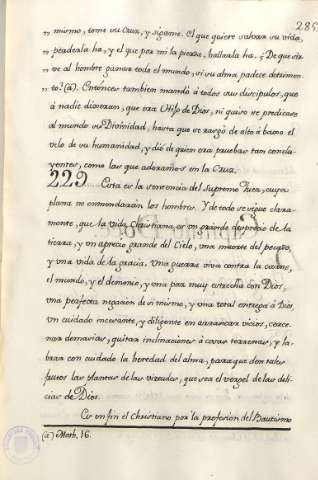 285
" mismo, tome su Cruz, y sigame. El que quiere salvar su vida,
" perderla ha, y el que por mi la pierde, hallarla ha. ¿De que sir-
" ve al hombre ganar todo el mundo, si su alma padece detrimen-
to? (a). Entonces tambien mandó à todos sus discipulos, que
à nadie dixeran, que era Hijo de Dios, ni quiso se predicase
al mundo su Divinidad, hasta que se rasgó de alto à baxo el
velo de su humanidad, y dió de quien era pruebas tan conclu-
yentes, como las que adoramos en la Cruz.
223. Esta es la sentencia del Supremo Juez, cuya
plana no enmendarán los hombres. Y de todo se sigue clara-
mente, que la vida Christiana es un grande desprecio de la
tierra, y un aprecio grande del Cielo, una muerte del pecado,
y una vida de la gracia. Una guerra viva contra la carne,
el mundo, y el demonio, y una paz muy estrecha con Dios,
una perfecta negacion de si mismo, y una total entrega à Dios,
un cuidado incesante, y diligente en arrancar vicios, cerce-
nar demasias, quitar inclinaciones à cosas terrenas, y la-
brar con cuidado la heredad del alma, para que den tales
frutos las plantas de las virtudes, que sea el vergel de las deli-
cias de Dios.
Es en fin el Christiano por la profesion del Bautismo
(a) Math. 16.